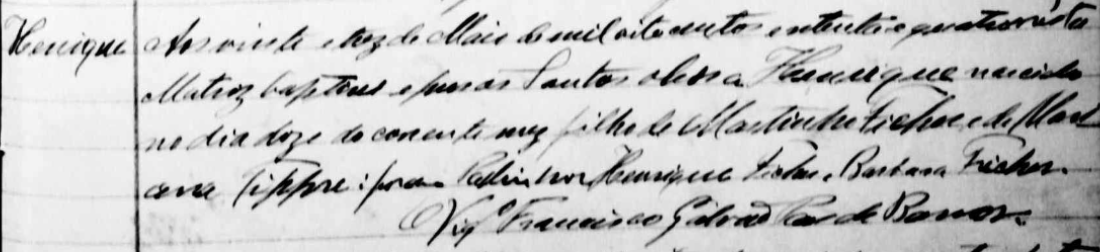 Henrique Aos vinte e trez de Maio de mil oito centos e oitenta e quatro nesta
Matriz baptisei e puz os Santos oleos a Henrique nascido
no dia doze do corrente mez filho de Martinho Ficher e de Mar
cena Tippre: foram Padrinhos Henrique Ficher e Barbara Ficher.
O Vigº Francisco Galvão Paes de Barros.